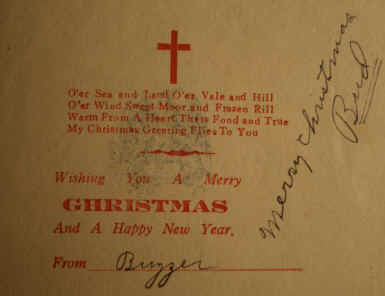 O'er Sea and Land O'er Vale and Hill
O'er Wind Swept Moor and Frozen Rill
Warm From A Heart Thats Fond and True
My Christmas Greeting Flies To You
Wishing You A Merry
CHRISTMAS
And A Happy New Year.
From Buzzer
Merry Christmas
Bud